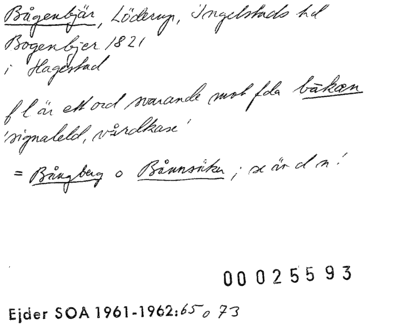 Bågenbjär, Löderup, Ingelstads hd
Bogenbjer 1821
i Hagestad
f l är ett ord svarande mot fda båkæn
'signaleld, vårdkase'
= Bångberg o Båunsåker; se än d n!
00025593
Ejder SOA 1961-1962:65 o 73